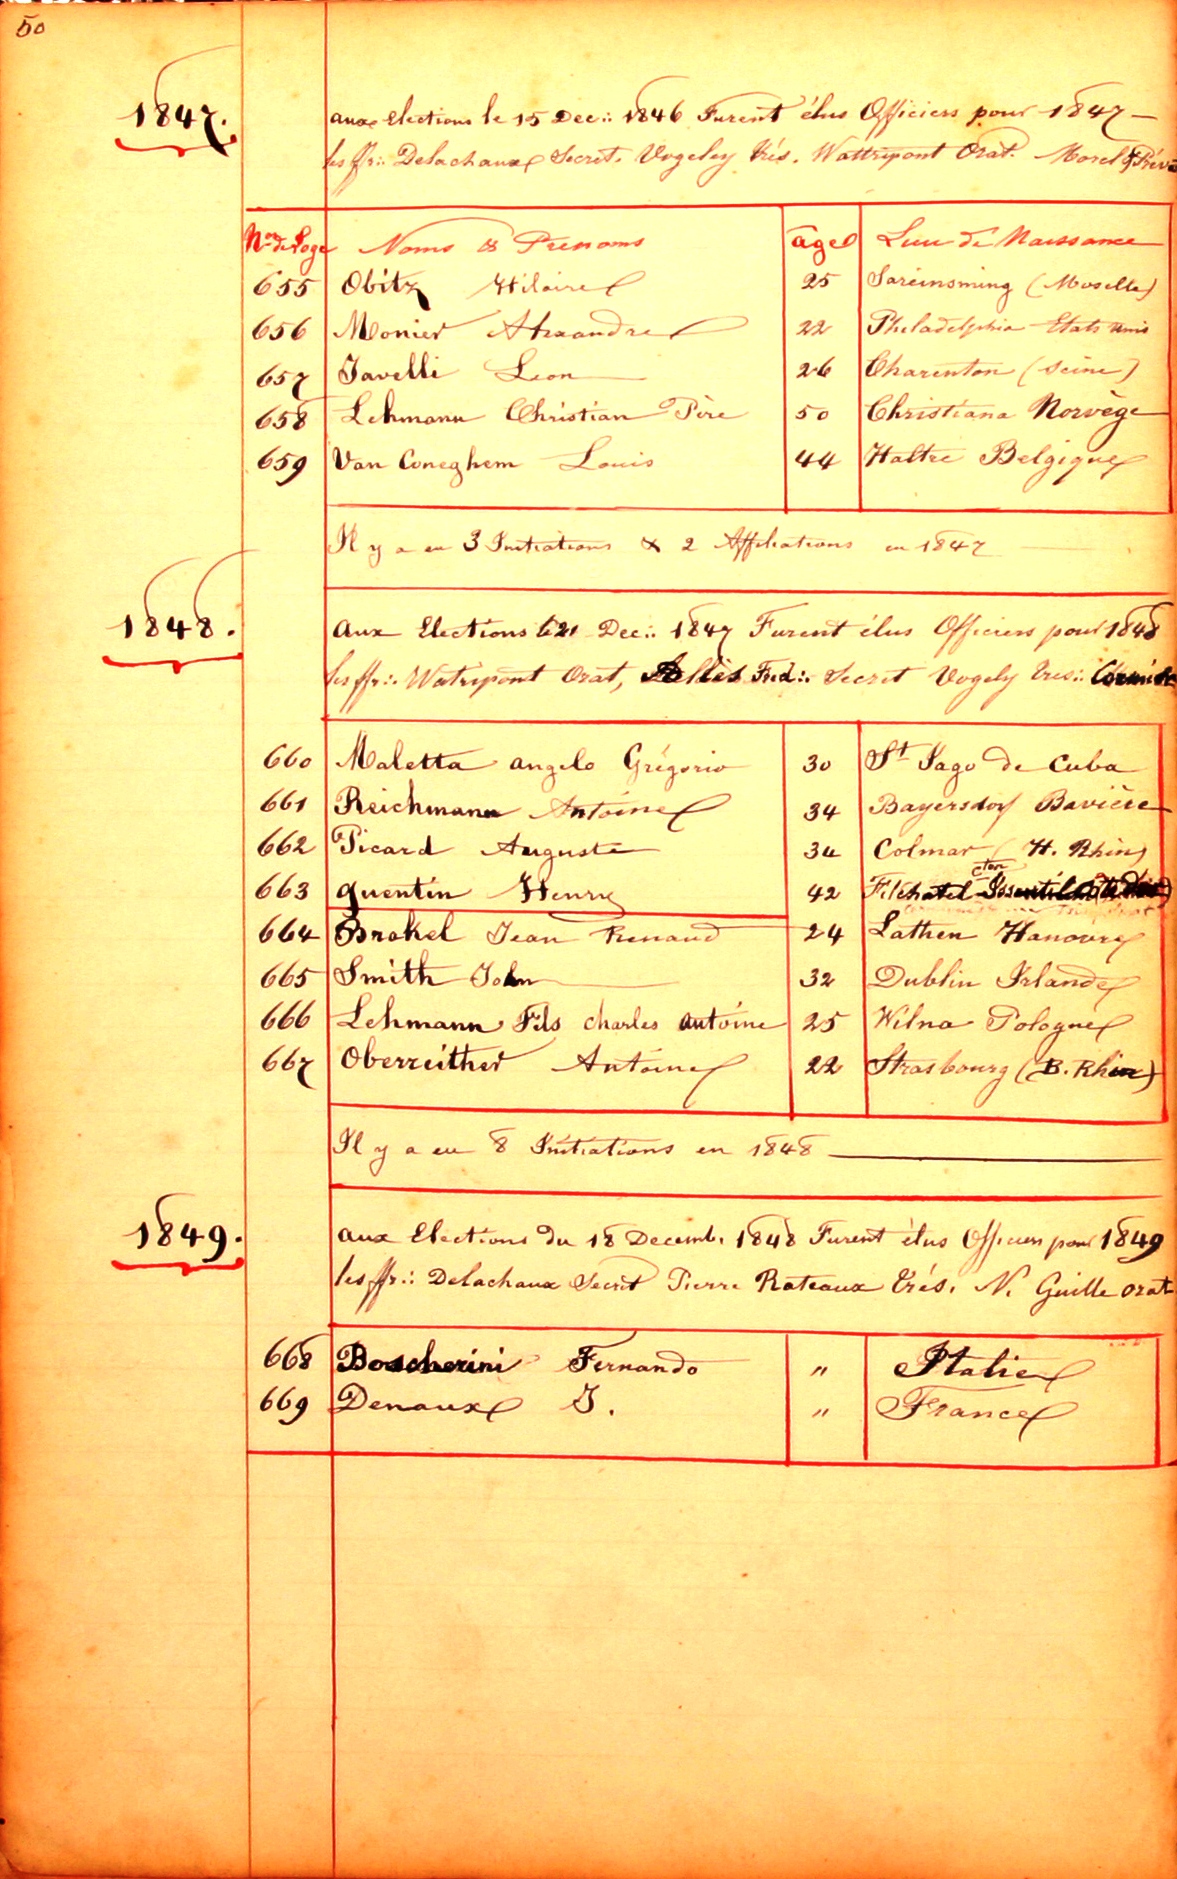 50
1847.
aux Elections le 15 Dec:: 1846 Furent élus Officiers pour 1847 —
les ffr:: Delachaux Secret. Vogeley Trés. Wattripont Orat. Morel
Nos de Loge Noms & Prenoms age Lieu de Naissance
655 Obitz Hilaire 25 Sareinsming (Moselle)
656 Monier Alexandre 22 Philadelphia Etats Unis
657 Javelli Leon 26 Charenton (Seine)
658 Lehmann Christian Père 50 Christiana Norvège
659 Van Coneghem Louis 44 Haltre Belgique
Il y a eu 3 Initiations & 2 Affiliations en 1847
1848.
Aux Elections le 21 Dec:: 1847 Furent élus Officiers pour 1848
les ffr:: Watripont Orat, Fred:. Secret Vogely Tres::
660 Maletta angelo Grégorio 30 St Iago de Cuba
661 Reichmann Antoine 34 Bayersdorf Bavière
662 Picard Auguste 34 Colmar (H. Rhin)
663 quentin Henry 42
664 Brakel Jean Renaud 24 Lathen Hanovre
665 Smith John 32 Dublin Irlande
666 Lehmann Fils charles antoine 25 Wilna Pologne
667 Oberreither Antoine 22 Strasbourg (B. Rhin)
Il y a eu 8 Initiations en 1848
1849.
aux Elections du 18 Decemb. 1848 Furent élus Officiers pour 1849
les ffr:: Delachaux Secret Pierre Rateaux Trés. N. Guille orat
668 Boscherini Fernando " Italie
669 Denaux J. " France